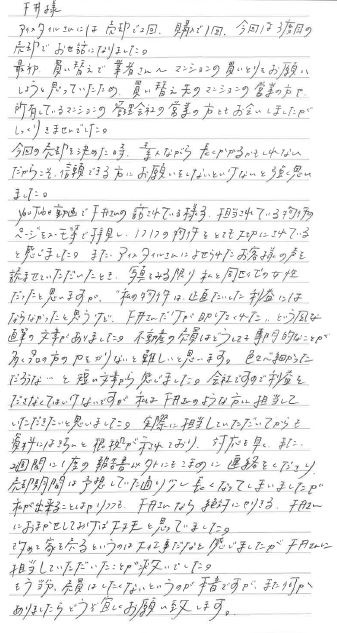 平井様
アイスタイルさんには 売却で2回、購入で1回、今回は3度目の
売却でお世話になりました。
最初、買い替えで業者さんへマンションの買いとりをお願い
しようと思っていたため、買い替え先のマンションの営業の方や、
所有しているマンションの管理会社の営業の方ともお会いしましたが
しっくりきませんでした。
今回の売却を決めた時、素人ながら長くかかるかもしれない
だからこそ、信頼できる方にお願いをしないといけないと強く思い
ました。
YouTube動画で平井さんの話されている様子、担当されている物件の
ページをスマホ等で拝見し、1つ1つの物件をとても大切にされている
と感じました。また、アイスタイルさんによせられたお客様の声を
読ませていただいたとき、
だったと思いますが、"私の物件は、正直たいした利益には
ならなかったと思うけど、平井さんだけが助けてくれた、という風な
直筆の文章がありました。不動産の売買はどうしても事務的なことが
多く
だろうな…と短い文章から感じました。会社ですので利益を
ださなくてはいけないですが 私は平井さんのような方に担当して
いただきたいと思いました。実際に担当していただいてからも
資料にはきちんと根拠が示されており、対応も早く、また、
2週間に1度の報告書以外にもこまめに連絡をくださり
売却期間は予想していた通り少し長くなってしまいましたが
私が出来ることはやりつつも、平井さんなら絶対にやりきる、平井さん
におまかせしておけば大丈夫と思っていました。
改めて家を売るというのは大仕事だなと感じましたが平井さんに
担当していただいたことが救いでした。
もう当分、売買はしたくないというのが本音ですが、また何か
ありましたらどうぞ宜しくお願い致します。